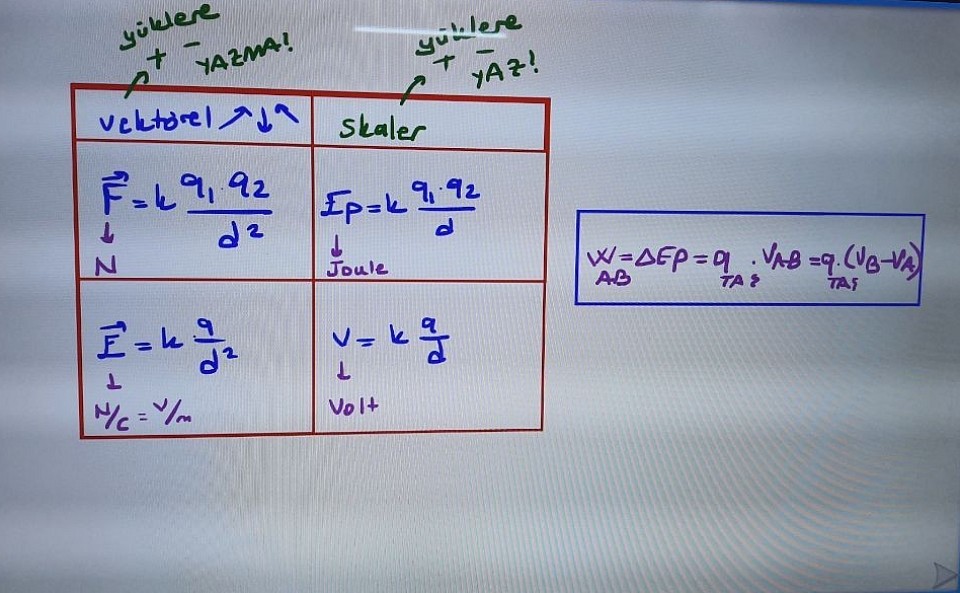 yüklere
+ -
YAZMA!
yüklere
+ -
YAZ!
vektörel ↗↓↖
Skaler
F⃗ = k q1.q2 / d²
↓
N
Ep = k q1.q2 / d
↓
Joule
E⃗ = k.q / d²
↓
N/C = V/m
V = k q / d
↓
Volt
W = ΔEp = q . VAB = q.(VB-VA)
AB TAŞ TAŞ